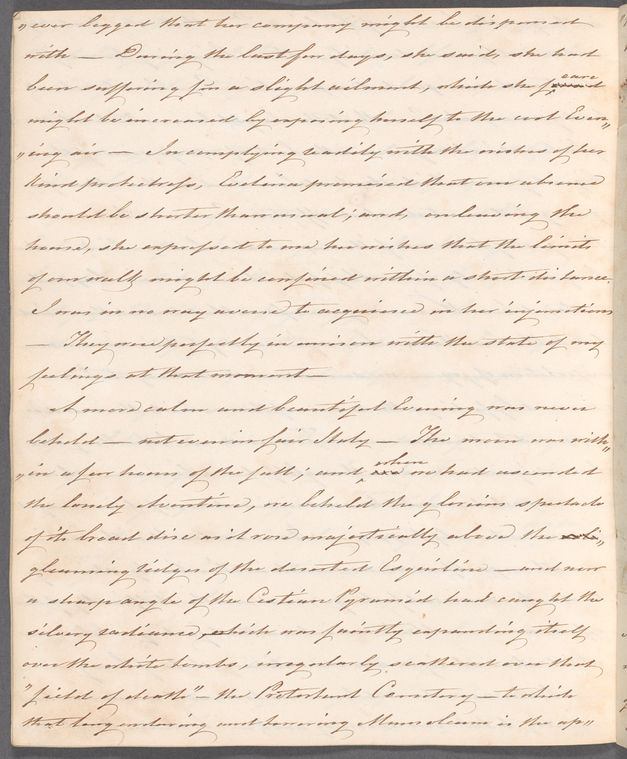 „ever begged that her company might be dispensed
with — During the last few days, she said, she had
been suffering fm a slight ailment, which she feared
might be increased by exposing herself to the cool Even„
„ing air — In complying readily with the wishes of her
kind protectress, Evelina promised that our absence
should be shorter than usual; and, on leaving the
house, she expressed to me her wishes that the limits
of our walk might be confined within a short distance.
I was in no way averse to acquiesce in her injunctions
— They were perfectly in unison with the state of my
feelings at that moment —
A more calm and beautiful Evening was never
beheld — not even in fair Italy — The moon was with„
„in a few hours of the full; and when we had ascended
the lonely Aventine, we beheld the glorious spectacle
of its broad disc as it rose majestically above the
gleaming ridges of the deserted Esquiline — and now
a sharp angle of the Cestian Pyramid had caught the
silvery radiance, which was faintly expanding itself
over the white tombs, irregularly scattered over that
"field of death" — the Protestant Cemetery — to which
that long enduring and towering Mausoleum is the ap„